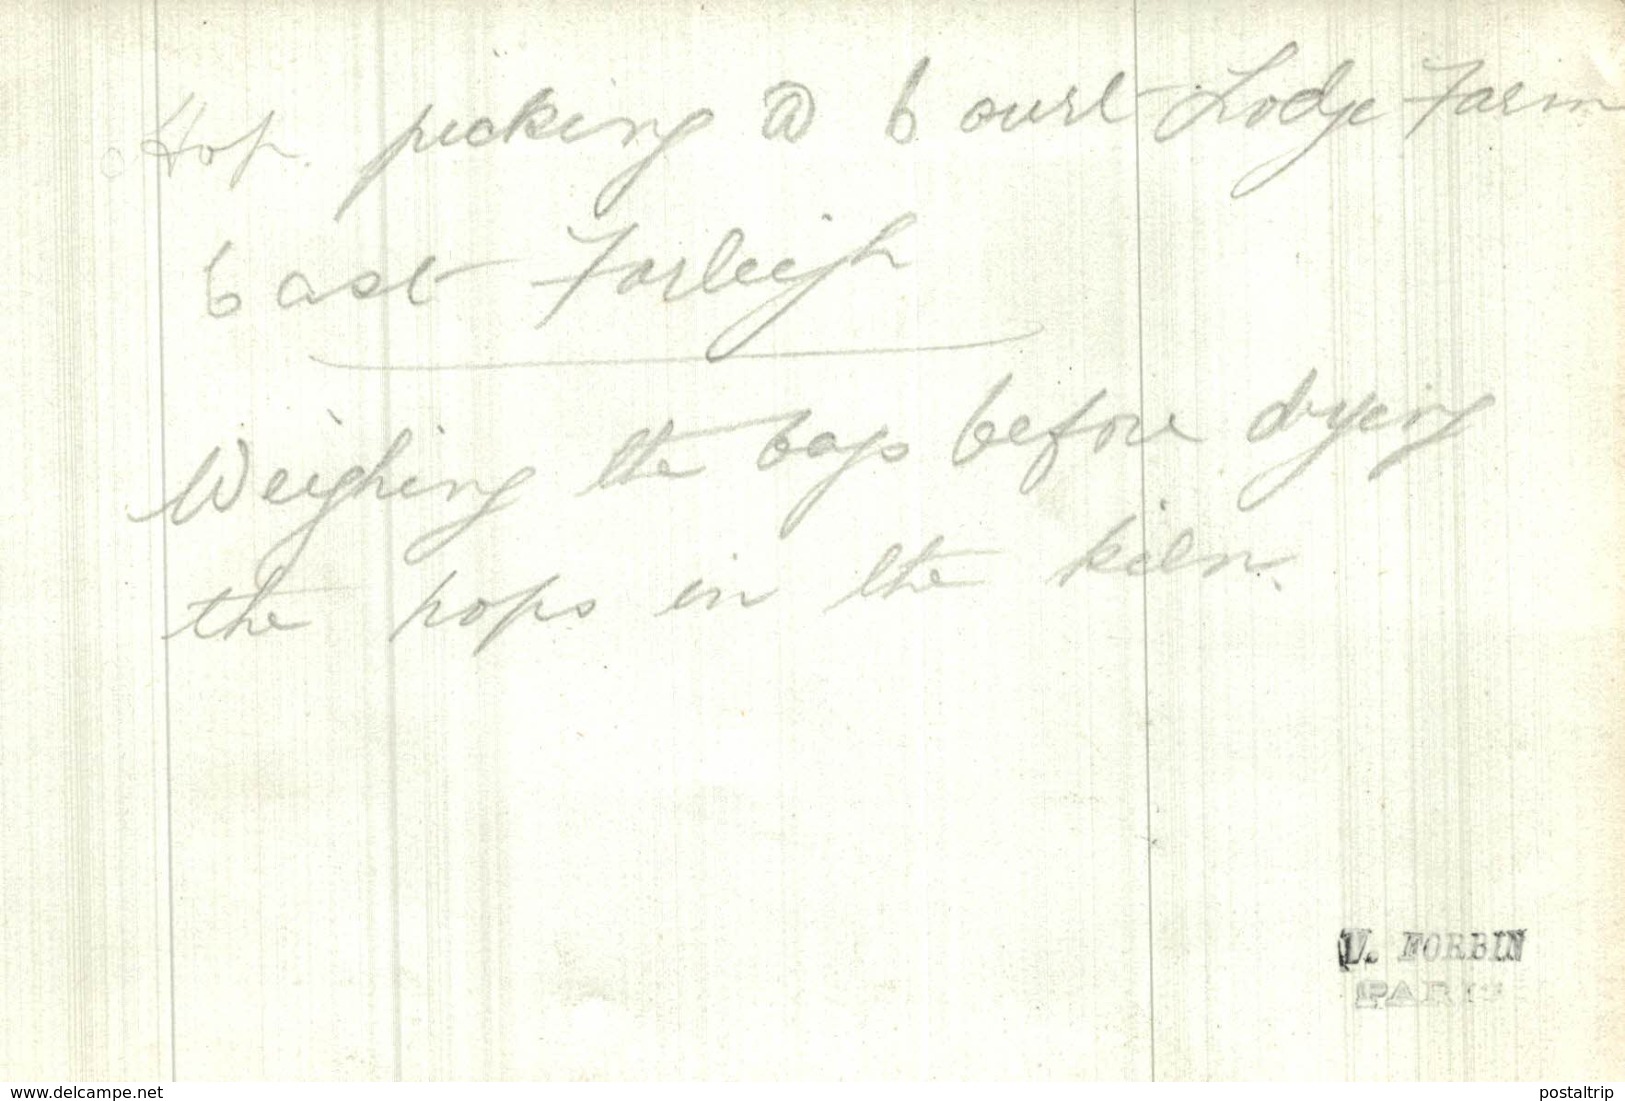 Hop picking @ Court Lodge Farm
East Farleigh
Weighing the bags before drying
the hops in the kiln.
V. FORBIN
PARIS
www.delcampe.net
postaltrip